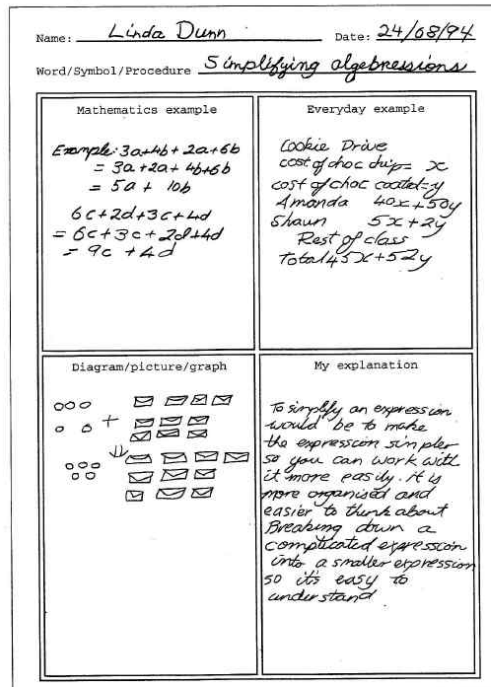 Name: Linda Dunn Date: 24/08/94
Word/Symbol/Procedure Simplifying algebressions
Mathematics example
Example: 3a+4b+2a+6b
= 3a+2a+4b+6b
= 5a + 10b
6c+2d+3c+4d
= 6c+3c+2d+4d
= 9c +4d
Everyday example
Cookie Drive
cost of choc chip= x
cost of choc coated=y
Amanda 40x+50y
Shaun 5x+2y
Rest of class
Total 45x+52y
Diagram/picture/graph
+
My explanation
To simplify an expression
would be to make
the expression simpler
so you can work with
it more easily. it is
more organised and
easier to think about
Breaking down a
complicated expression
into a smaller expression
so it's easy to
understand